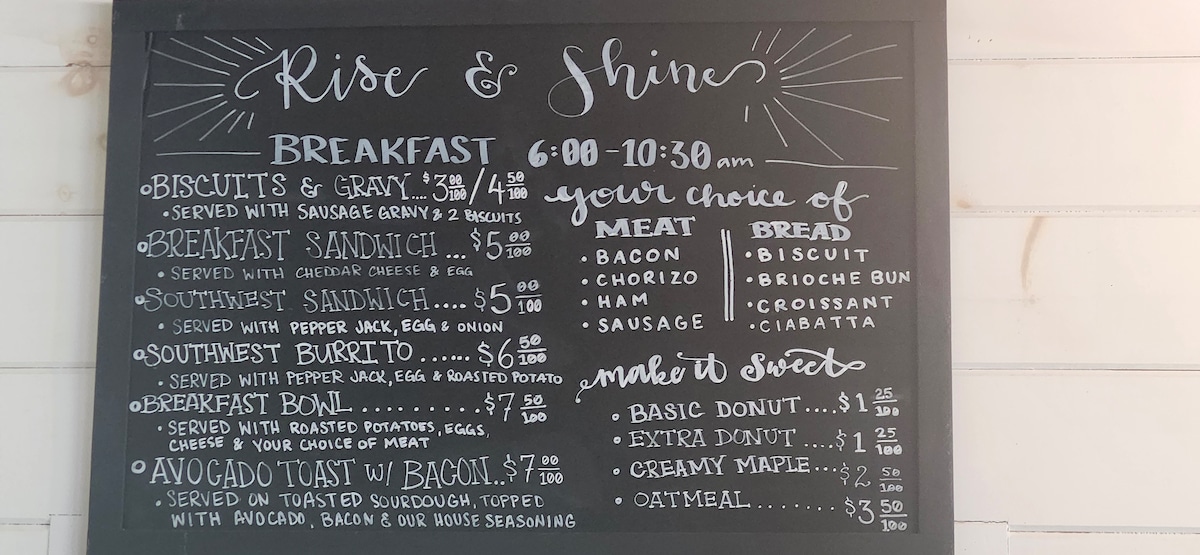 Rise & Shine
BREAKFAST 6:00-10:30am
BISCUITS & GRAVY....$3 00/100 / 4 50/100
• SERVED WITH SAUSAGE GRAVY & 2 BISCUITS
BREAKFAST SANDWICH ...$5 00/100
• SERVED WITH CHEDDAR CHEESE & EGG
SOUTHWEST SANDWICH....$5 00/100
• SERVED WITH PEPPER JACK, EGG & ONION
SOUTHWEST BURRITO......$6 50/100
• SERVED WITH PEPPER JACK, EGG & ROASTED POTATO
BREAKFAST BOWL.........$7 50/100
• SERVED WITH ROASTED POTATOES, EGGS,
CHEESE & YOUR CHOICE OF MEAT
AVOCADO TOAST W/ BACON..$7 00/100
• SERVED ON TOASTED SOURDOUGH, TOPPED
WITH AVOCADO, BACON & OUR HOUSE SEASONING
your choice of
MEAT
• BACON
• CHORIZO
• HAM
• SAUSAGE
BREAD
• BISCUIT
• BRIOCHE BUN
• CROISSANT
• CIABATTA
make it Sweet
BASIC DONUT....$1 25/100
EXTRA DONUT ....$1 25/100
CREAMY MAPLE...$2 50/100
OATMEAL.......$3 50/100